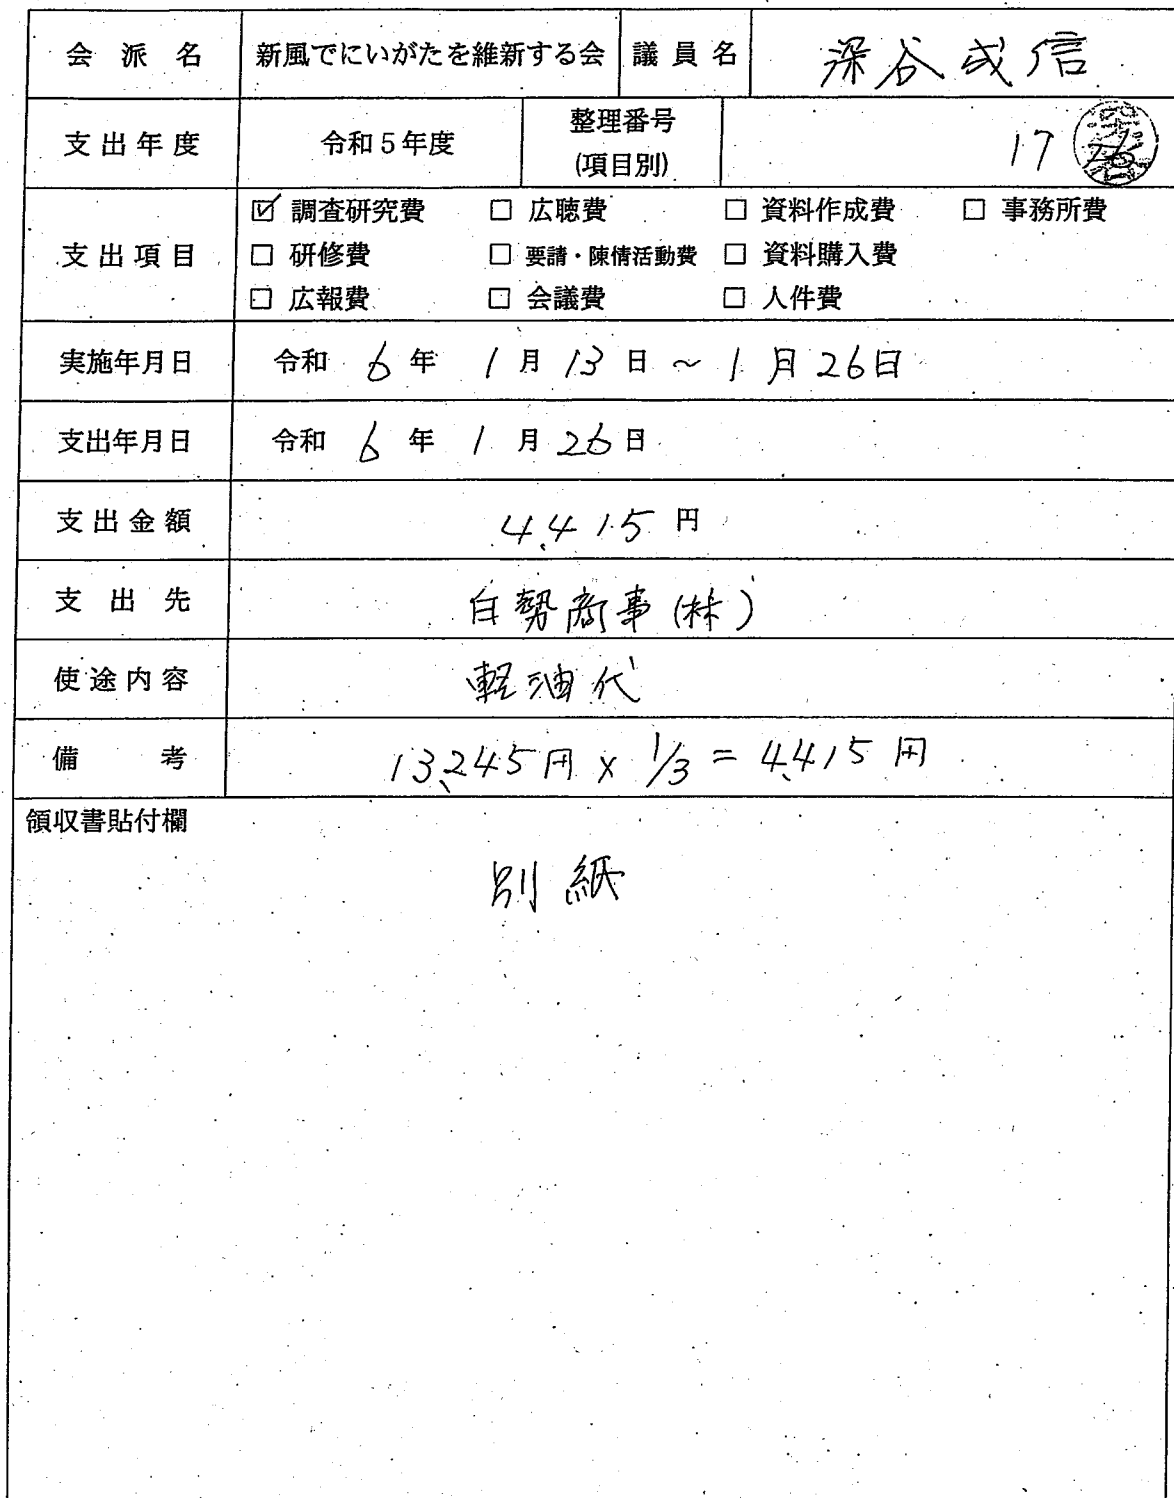 会派名 新風でにいがたを維新する会 議員名 深谷成信
支出年度 令和5年度 整理番号(項目別) 17
支出項目
☑ 調査研究費 □ 広聴費 □ 資料作成費 □ 事務所費
□ 研修費 □ 要請・陳情活動費 □ 資料購入費
□ 広報費 □ 会議費 □ 人件費
実施年月日 令和 6 年 1 月 13 日 ~ 1 月 26 日
支出年月日 令和 6 年 1 月 26 日
支出金額 4,415 円
支出先 白勢商事(株)
使途内容 軽油代
備考 13,245円 × 1/3 = 4,415円
領収書貼付欄
別紙